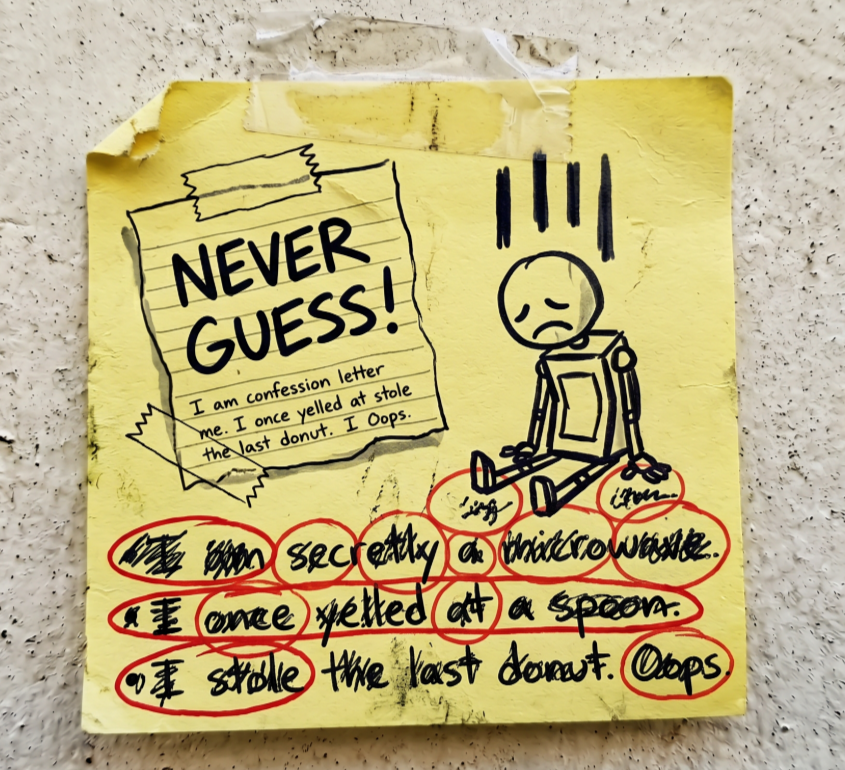 NEVER
GUESS!
I am confession letter
me. I once yelled at stole
the last donut. I Oops.
secretly a microwave.
• I once yelled at a spoon.
• I stole the last donut. Oops.